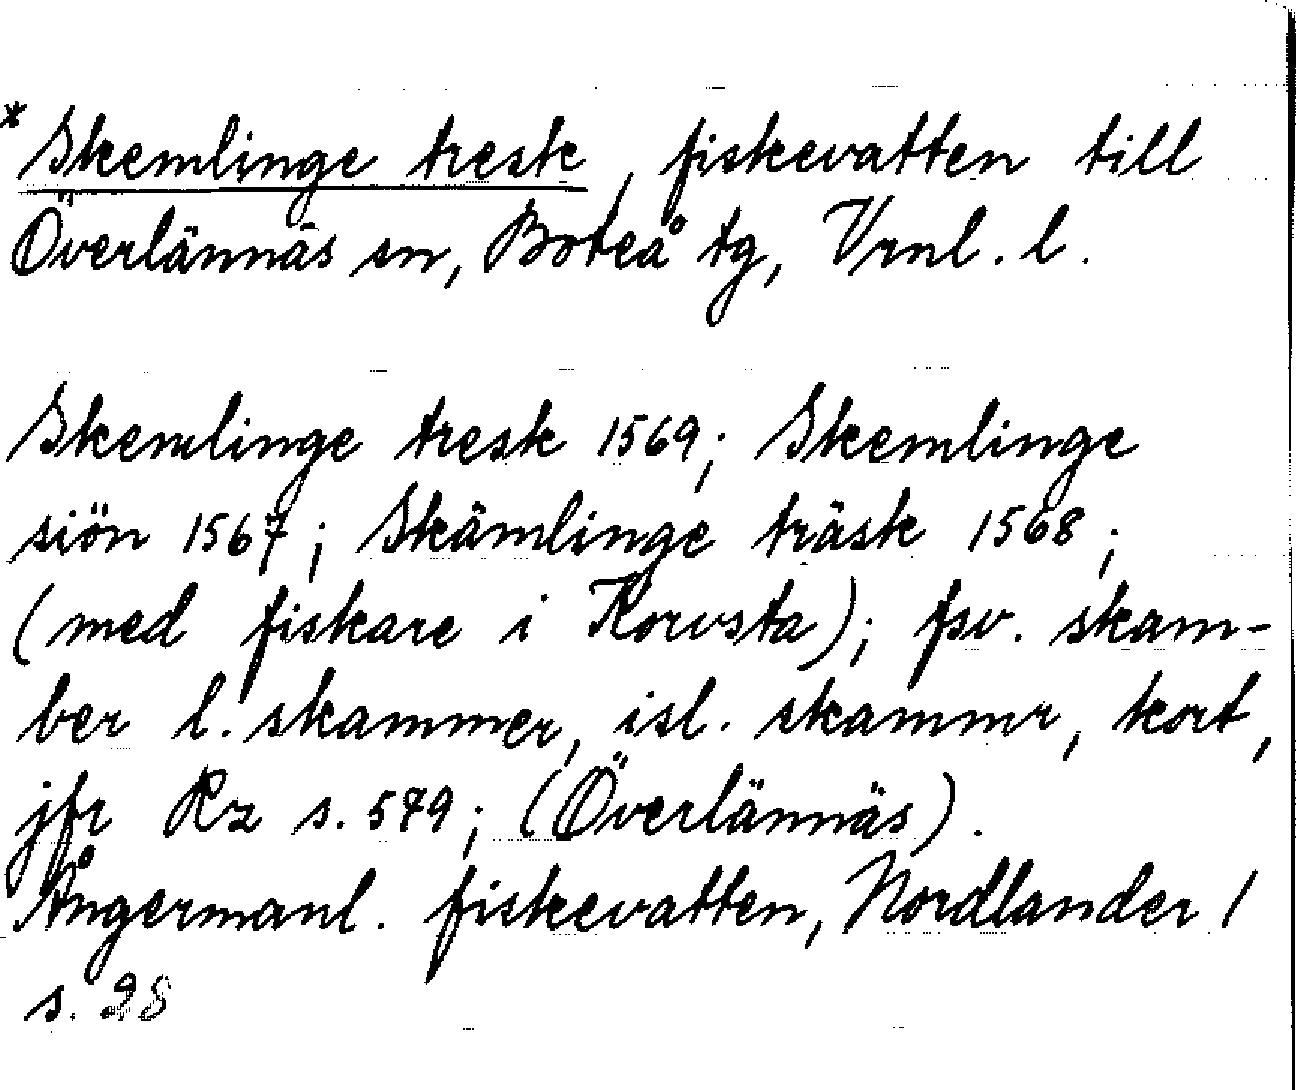 *Skemlinge tresk, fiskevatten till
Överlännäs sn, Boteå tg, Vrnl. l.
Skemlinge tresk 1569; Skemlinge
siön 1567; Skämlinge träsk 1568;
(med fiskare i Korvsta); fsv. skam-
ber l. skammer, isl. skammr, kort,
jfr Rz s. 579; (Överlännäs).
Ångermanl. fiskevatten, Nordlander 1
s. 28